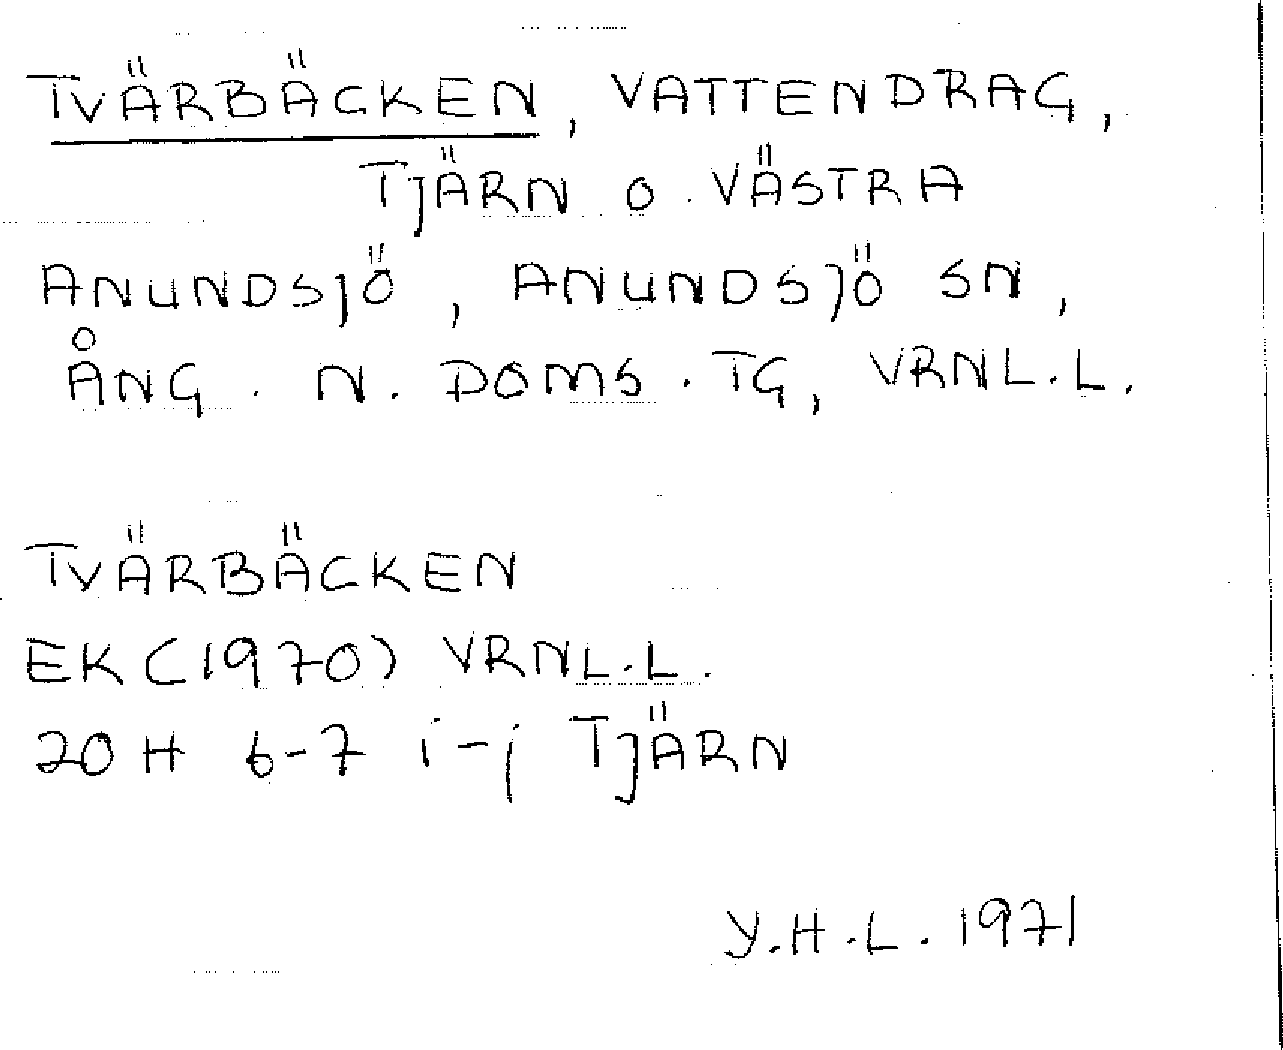 TVÄRBÄCKEN, VATTENDRAG,
TJÄRN O. VÄSTRA
ANUNDSJÖ, ANUNDSJÖ SN,
ÅNG. N. DOMS. TG, VRNL.L.
TVÄRBÄCKEN
EK(1970) VRNL.L.
20H 6-7 i-j TJÄRN
Y.H.L. 1971